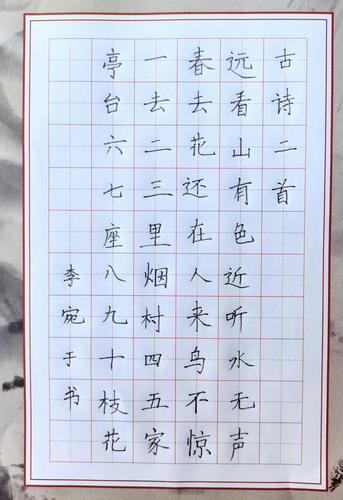 古诗二首
远看山有色近听水无声
春去花还在人来鸟不惊
一去二三里烟村四五家
亭台六七座八九十枝花
李宛于书